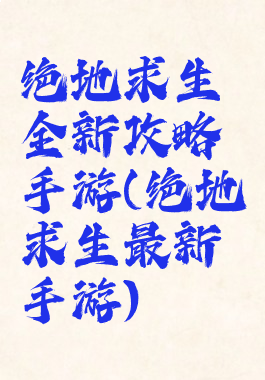 绝地求生
全新攻略
手游(绝地
求生最新
手游)